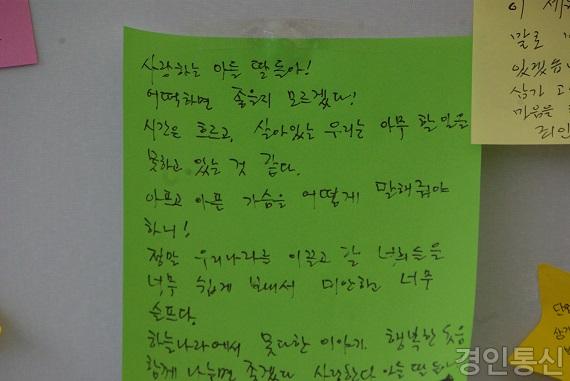 사랑하는 아들 딸들아!
어떡하면 좋을지 모르겠다!
시간은 흐르고, 살아있는 우리는 아무 할일을
못하고 있는 것 같다.
아프고 아픈 가슴을 어떻게 말해줘야
하니!
정말 우리나라를 이끌고 갈 너희들을
너무 쉽게 보내서 미안하고 너무
슬프다.
하늘나라에서 못다한 이야기 행복한 웃음
함께 나누면 좋겠다 사랑한다 아들 딸들아
이 세
말로
있겠습니
삼가 고
마음을
죄인
단원
삼가
경인통신